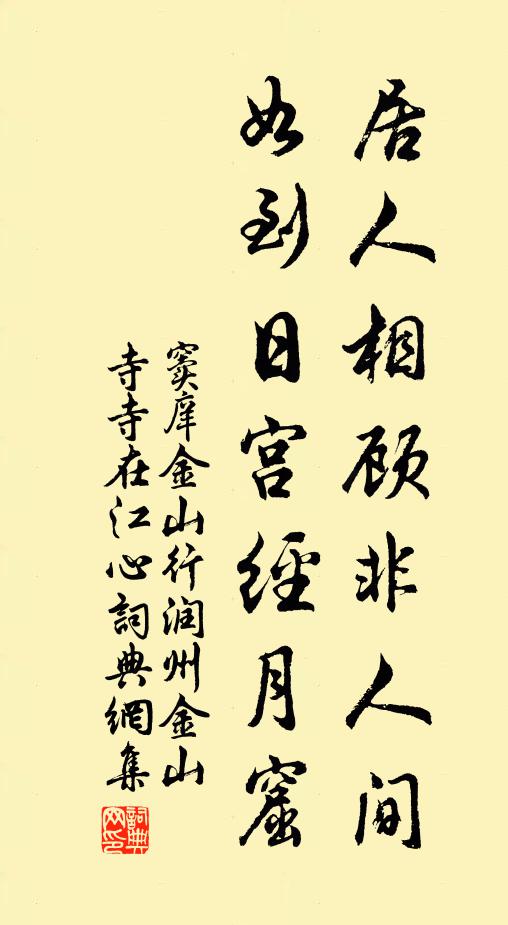 居人相顾非人间
如到日宫经月窟
窦庠金山行润州金山
寺寺在江心詞典網集
詞典網印